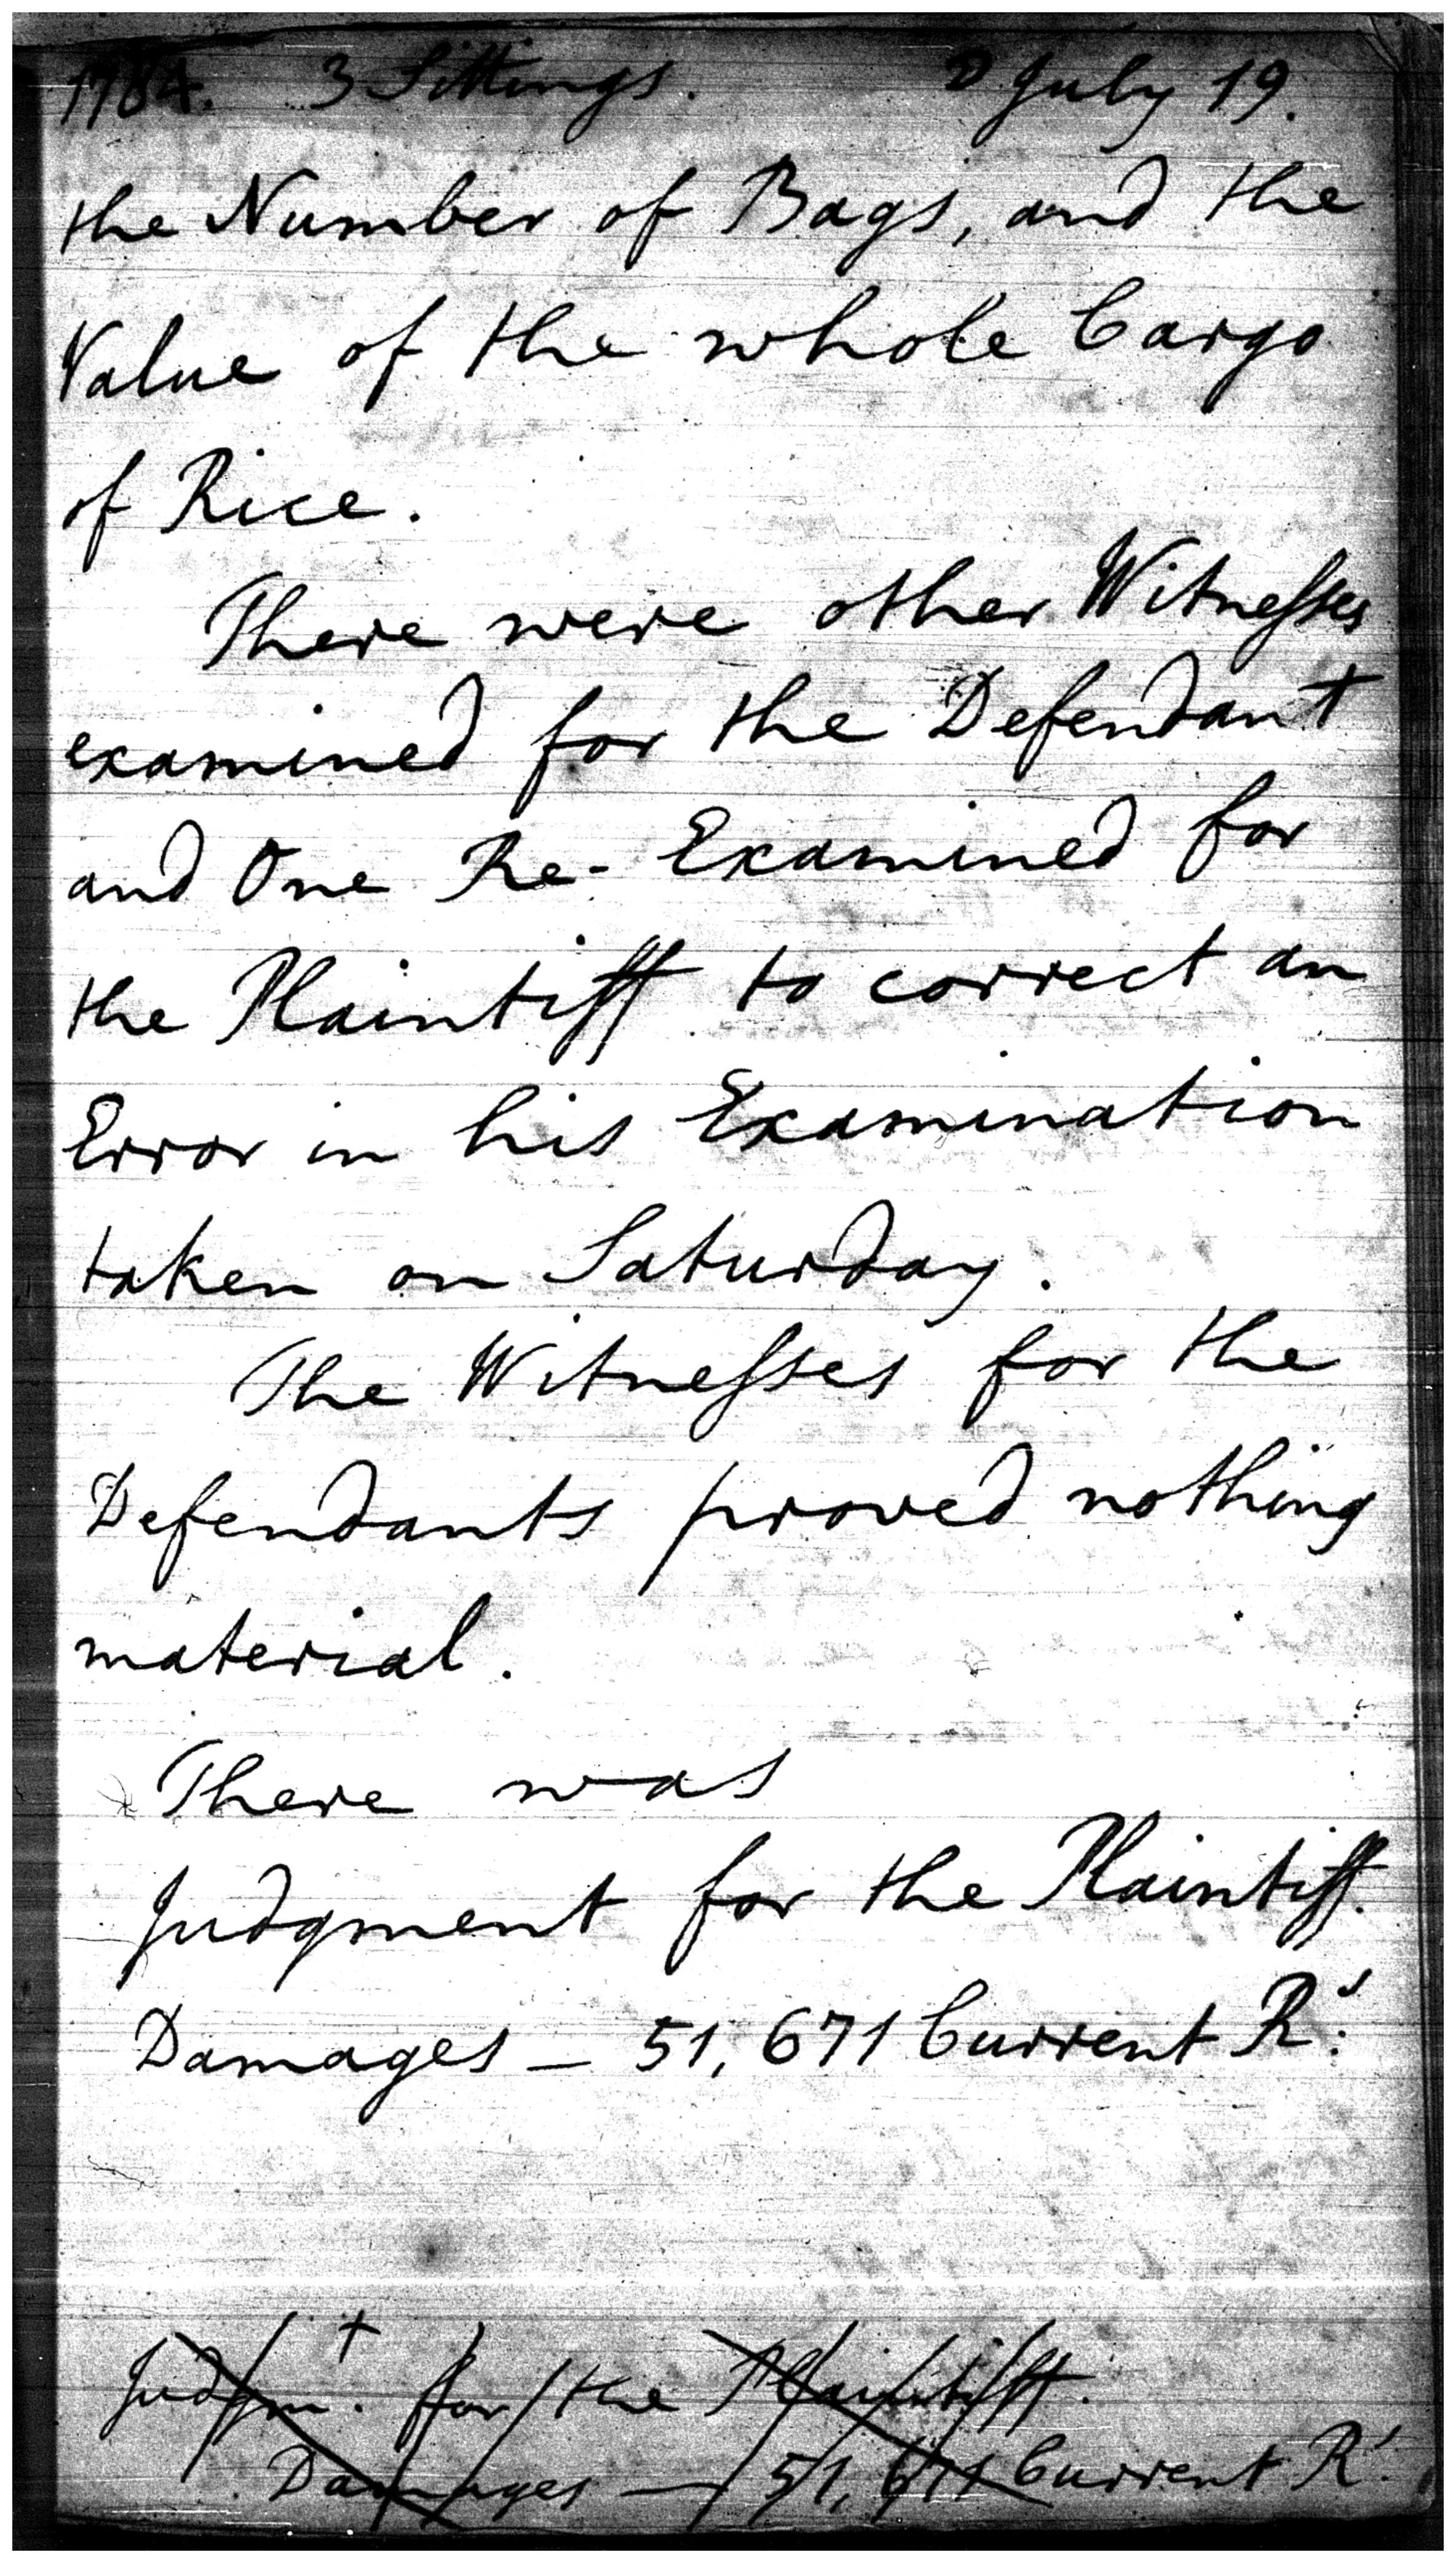 1784. 3 Sittings. D July 19.
the Number of Bags, and the
Value of the whole Cargo
of Rice.
There were other Witneſses
examined for the Defendant
and One Re-Examined for
the Plaintiff to correct an
Error in his Examination
taken on Saturday.
The Witneſses for the
Defendants proved nothing
material.
There was
Judgment for the Plaintiff.
Damages — 51,671 Current Rˢ.
Judgmᵗ. for the Plaintiff.
Damages — 51,671 Current Rˢ.